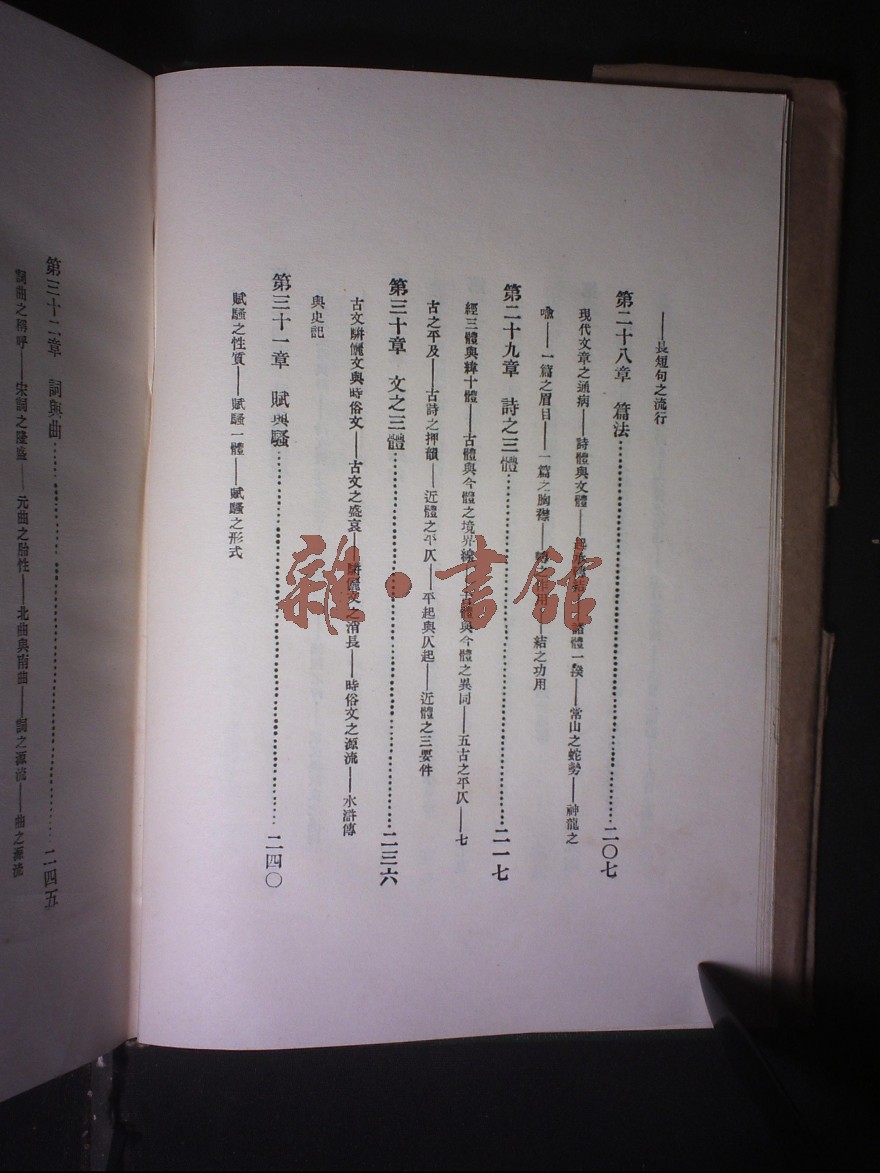 ——長短句之流行
第二十八章　篇法……二〇七
現代文章之通病——詩體與文體——起承轉結——諸體一揆——常山之蛇勢——神龍之
喻——一篇之眉目——一篇之胸襟——轉之作用——結之功用
第二十九章　詩之三體……二一七
經三體與緯十體——古體與今體之境界線——古體與今體之異同——五古之平仄——七
古之平及——古詩之押韻——近體之平仄——平起與仄起——近體之三要件
第三十章　文之三體……二三六
古文駢儷文與時俗文——古文之盛衰——駢儷文之消長——時俗文之源流——水滸傳
與史記
第三十一章　賦與騷……二四〇
賦騷之性質——賦騷一體——賦騷之形式
第三十二章　詞與曲……二四五
詞曲之稱呼——宋詞之隆盛——元曲之胎性——北曲與南曲——詞之源流——曲之源流
雜·書館